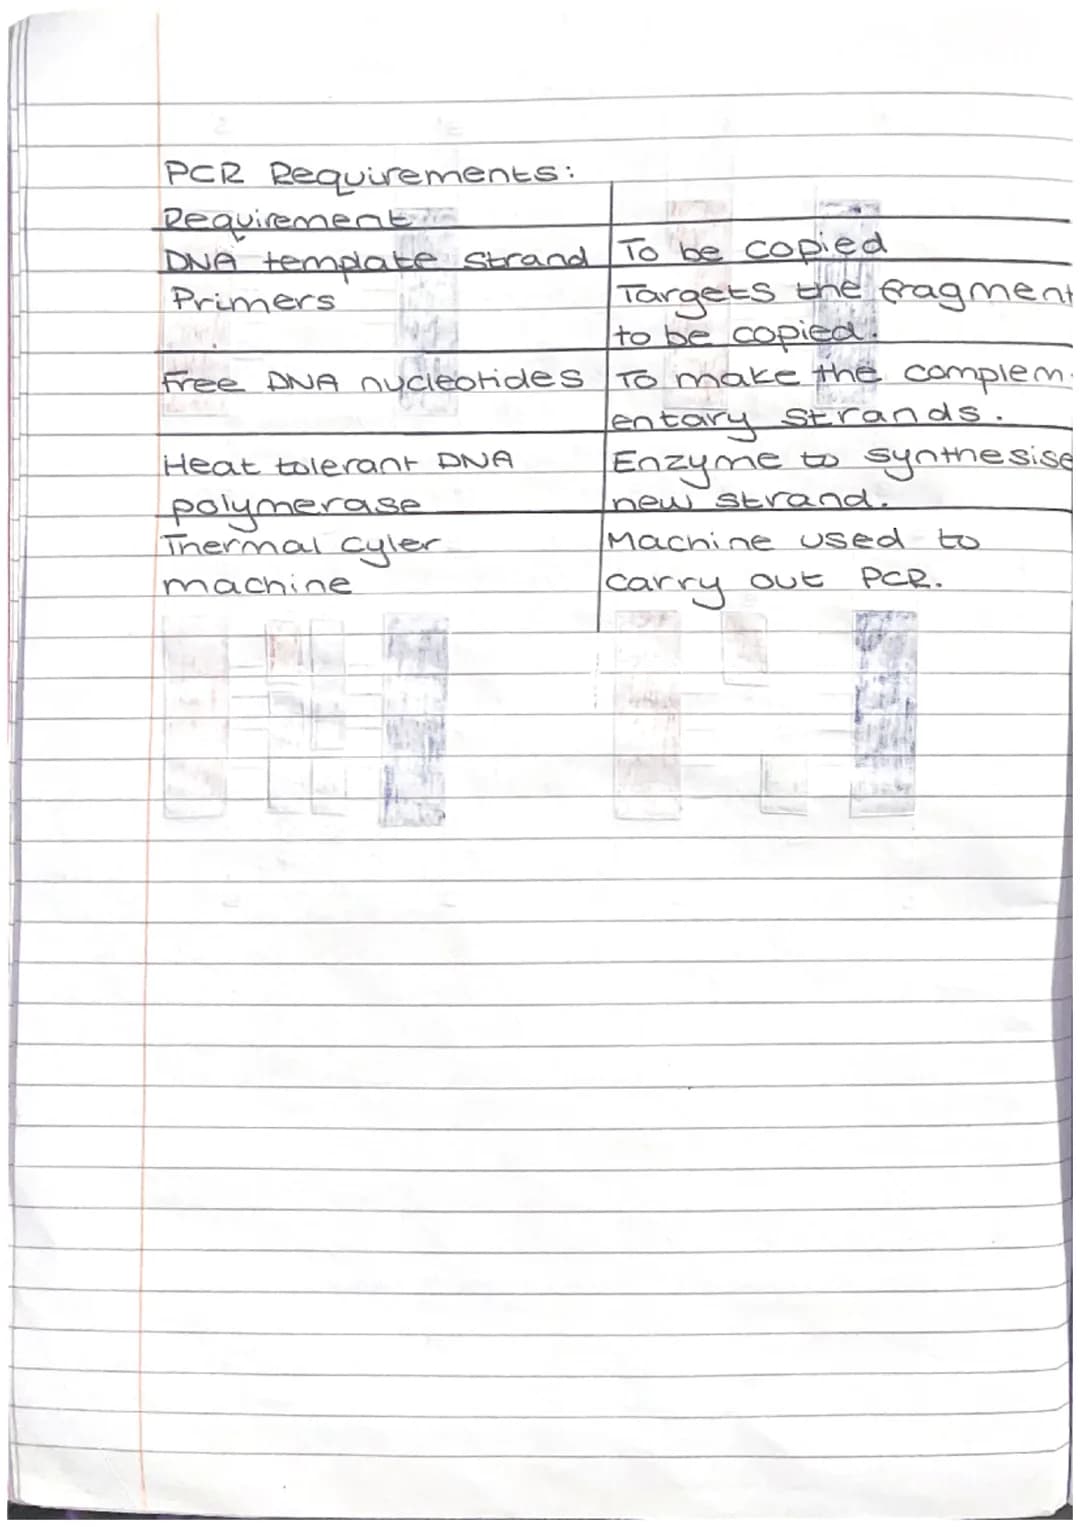 PCR Requirements:
Requirement
DNA template strand To be copied
Primers Targets the fragment
to be copied.
Free DNA nucleotides To make the complem-
entary strands.
Heat tolerant DNA Enzyme to synthesise
polymerase new strand.
Thermal cyler Machine used to
machine carry out PCR.